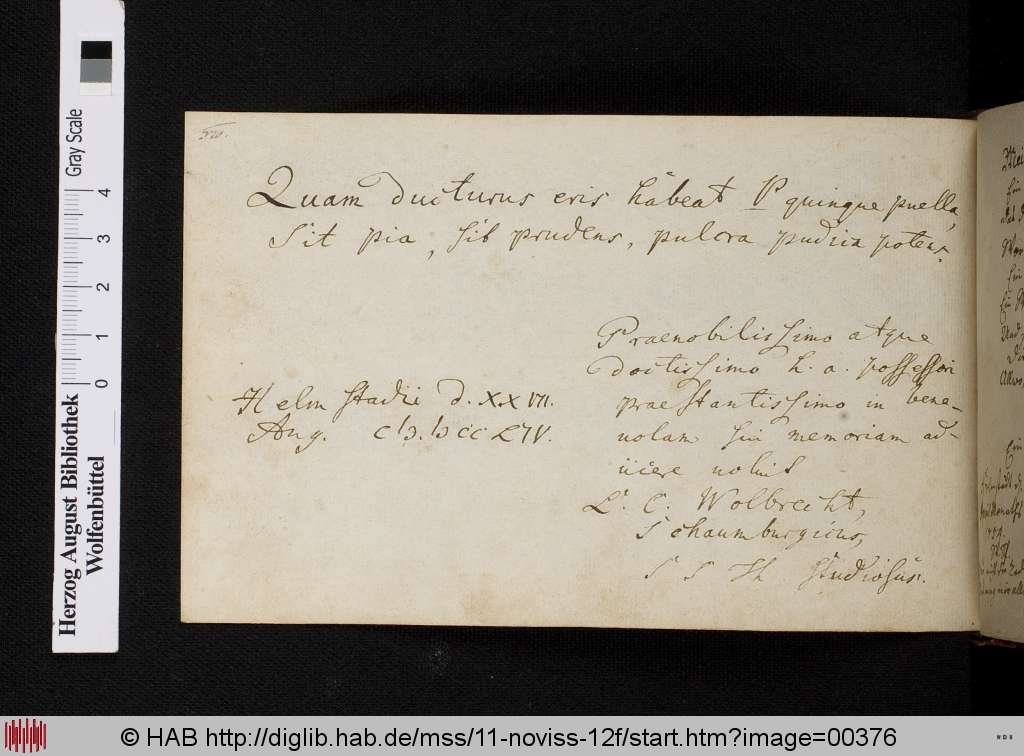 Quam ducturus eris habeat P quinque puella,
Sit pia, sit prudens, pulcra pudica potens.
Praenobilissimo atque
doctissimo h. a. possessori
praestantissimo in bene-
volam sui memoriam ad-
voluit
Helmstadii d. XXVII.
Aug. CIƆ.IƆCCLIV.
L. C. Wolbrecht,
Schaumburgicus,
S S Th studiosus.
Herzog August Bibliothek
Wolfenbüttel
Gray Scale
0 1 2 3 4
© HAB http://diglib.hab.de/mss/11-noviss-12f/start.htm?image=00376